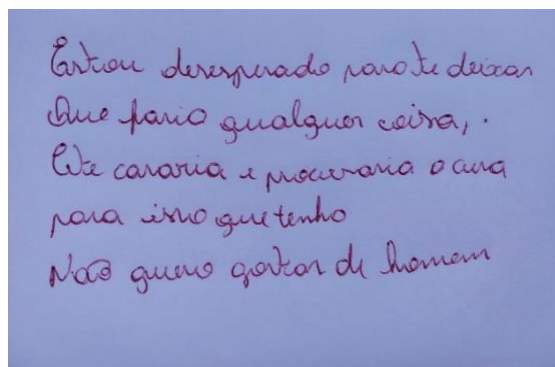 Estou desesperado para te deixar
Que faria qualquer coisa, .
Me casaria e procuraria a cura
para isso que tenho
Não quero gostar de homem